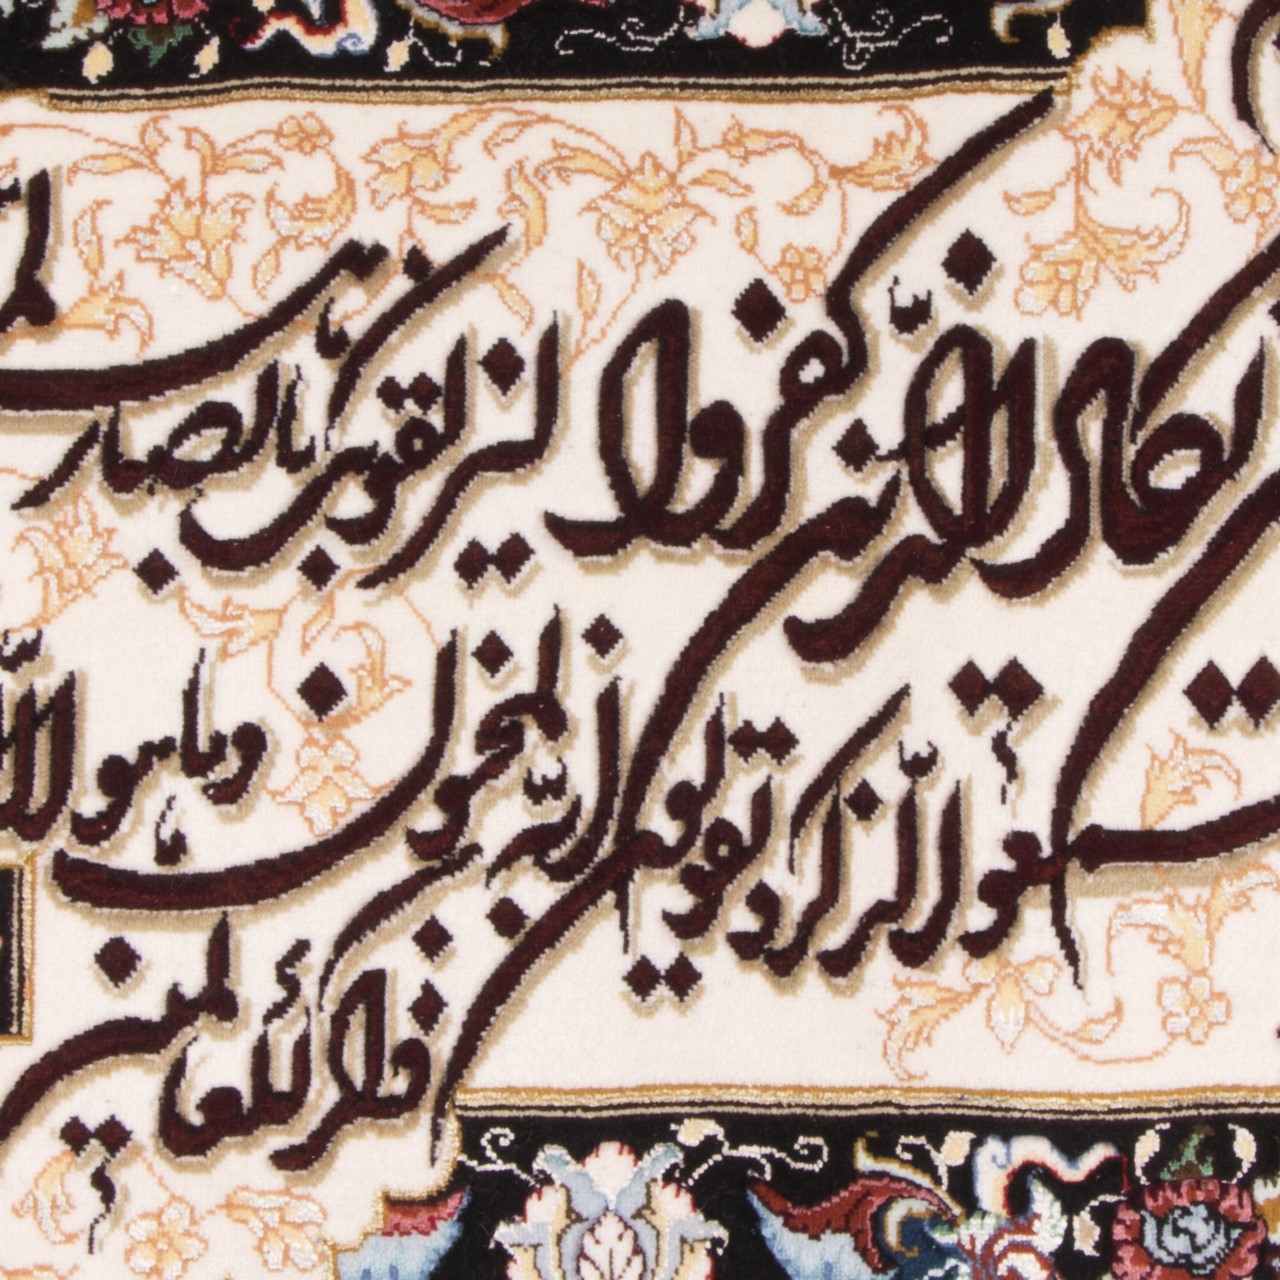 یکاد الذین کفروا لیزلقونک بابصارهم
سمعوا الذکر و یقولون انه لمجنون و ما هو الا
ذکر للعالمین